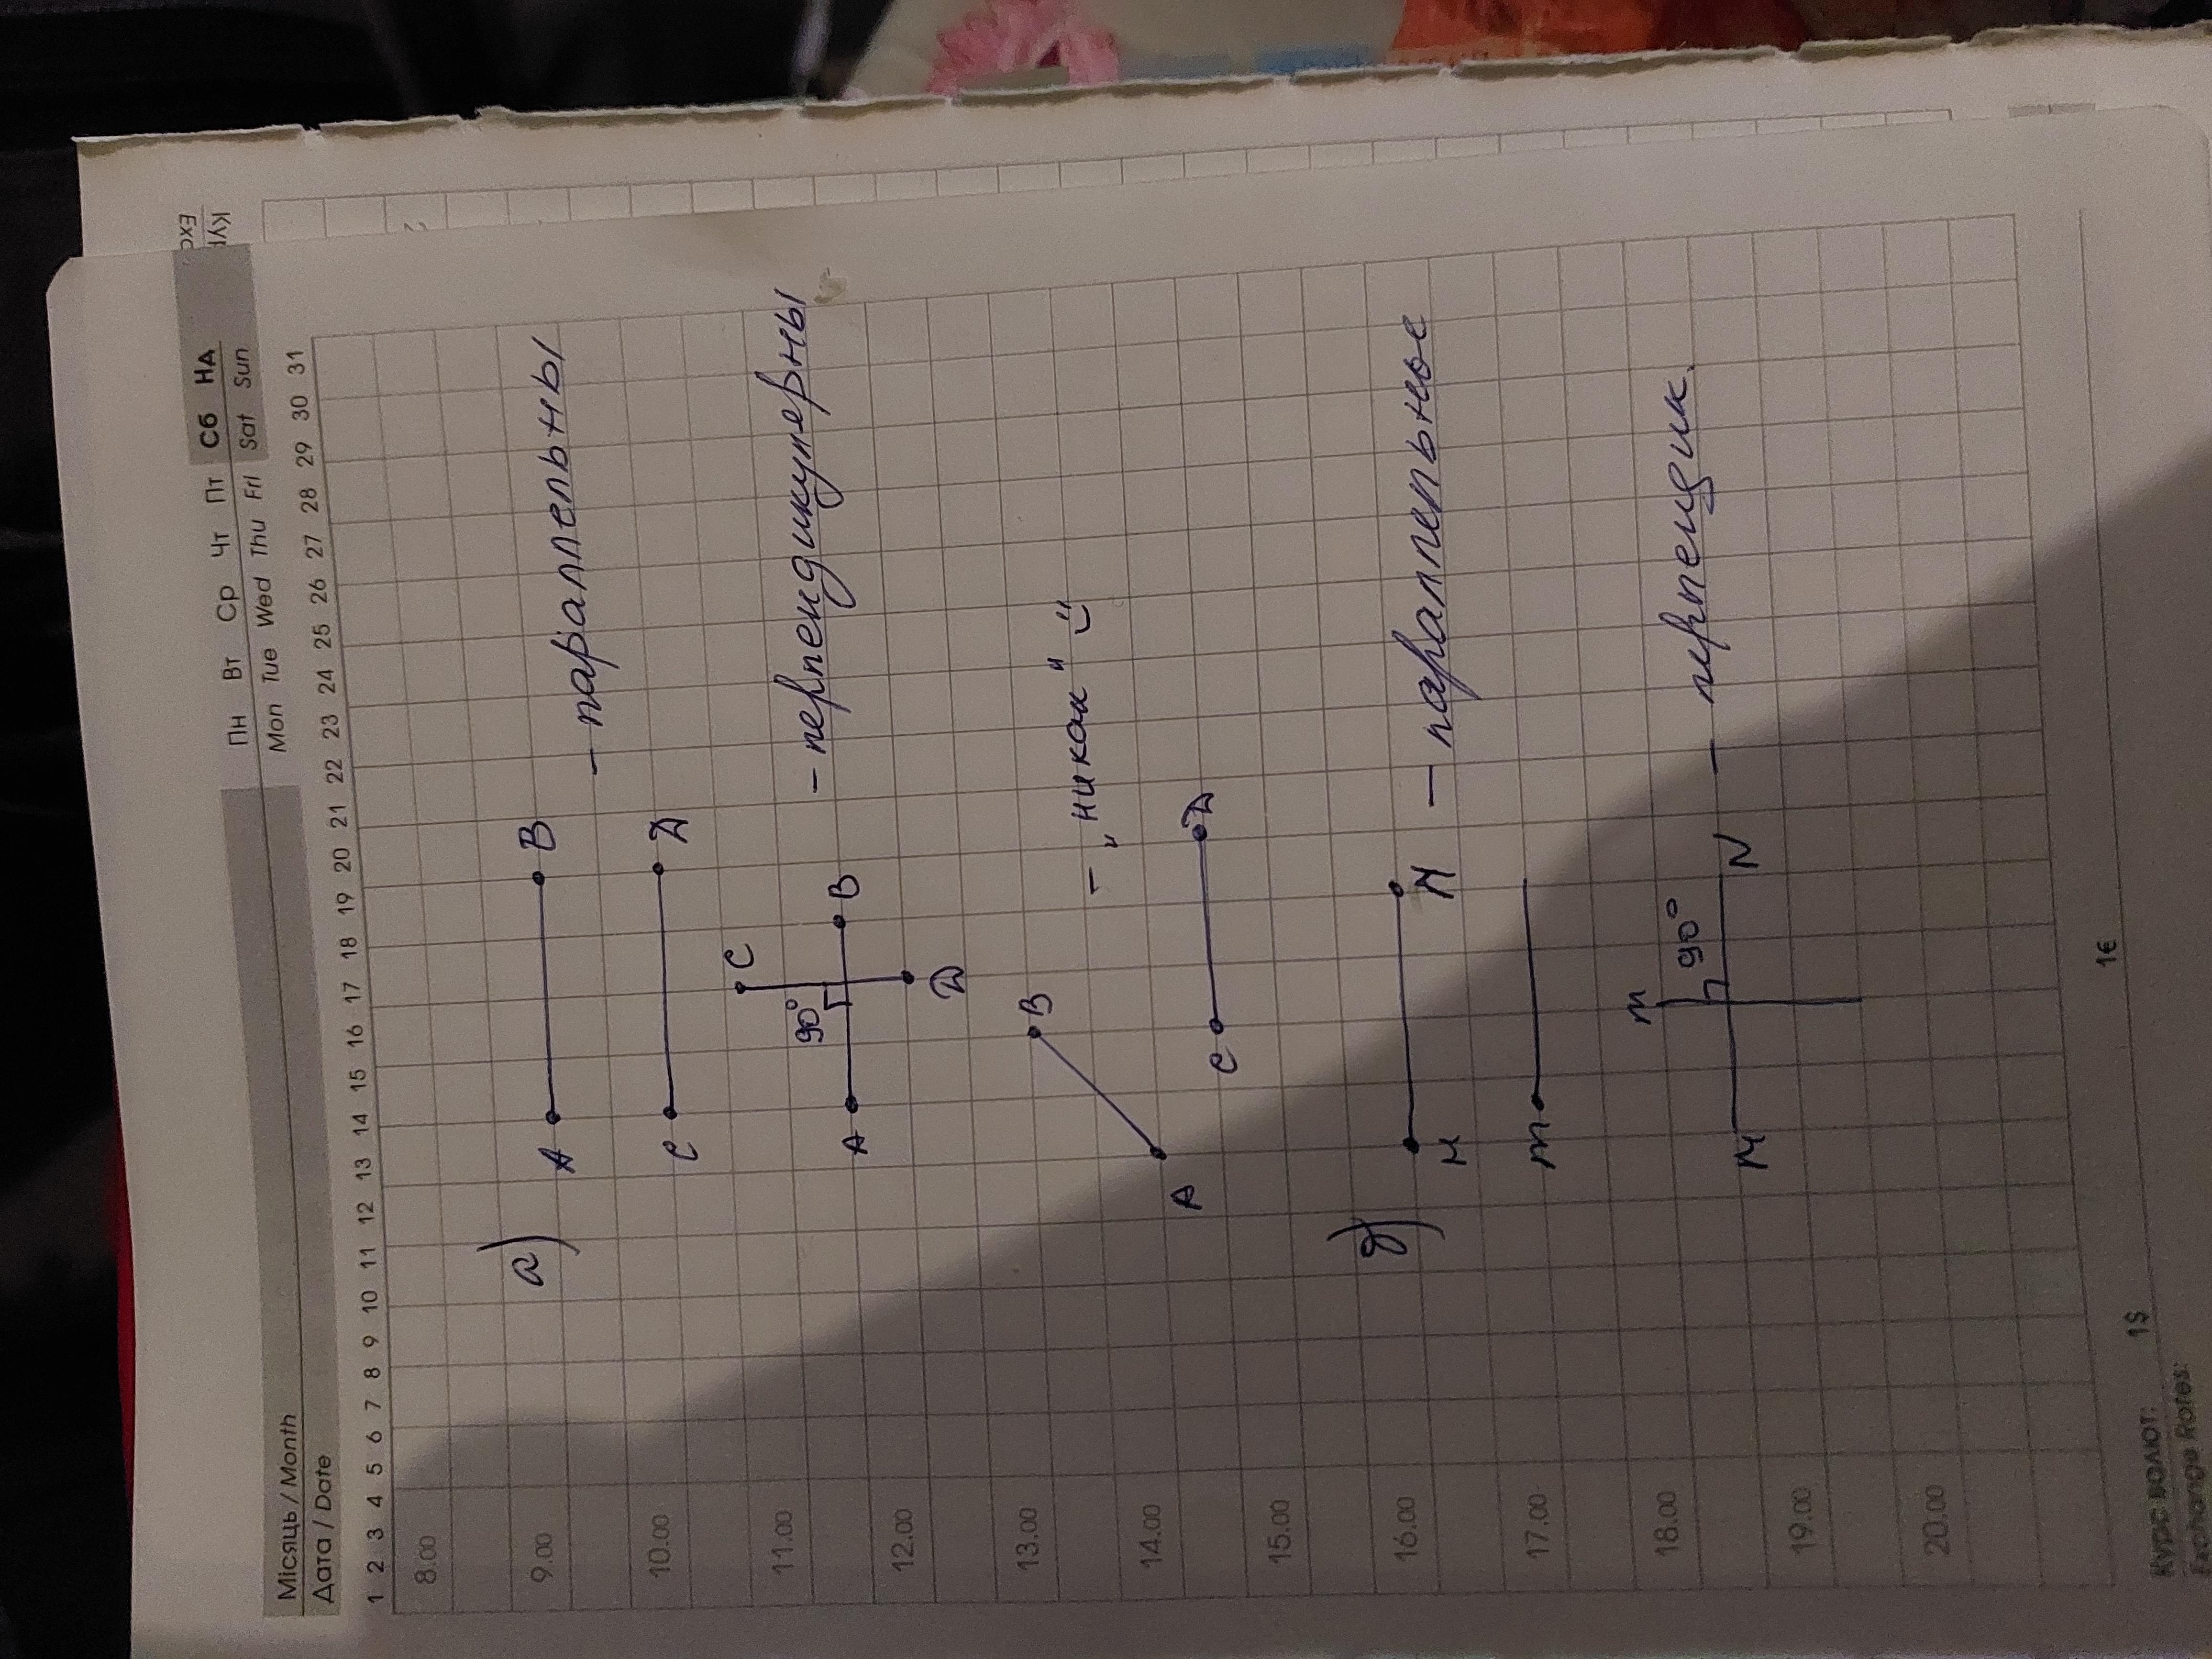 Місяць / Month
Пн Вт Ср Чт Пт Сб Нд
Дата / Date
Mon Tue Wed Thu Fri Sat Sun
1 2 3 4 5 6 7 8 9 10 11 12 13 14 15 16 17 18 19 20 21 22 23 24 25 26 27 28 29 30 31
8.00
9.00
а) A B
– параллельны
10.00
C D
11.00
C
90°
A B – перпендикулерны
12.00
D
13.00
B – „никак“
14.00
A
C D
15.00
16.00
б)
M N – параллельные
17.00
m
18.00
m
90°
M N – перпендик.
19.00
20.00
Курс валют: 1$ 1€
Exchange Rates: